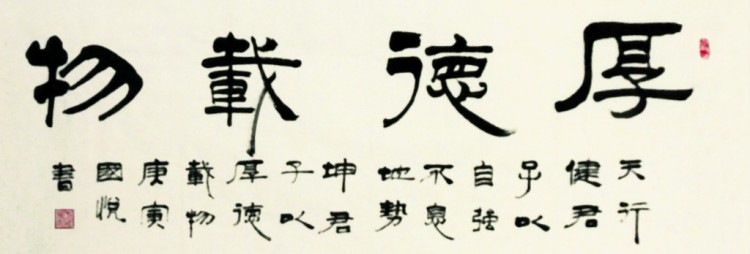 厚德載物
天行
健君
子以
自強
不息
地勢
坤君
子以
厚德
載物
庚寅
國悅
書